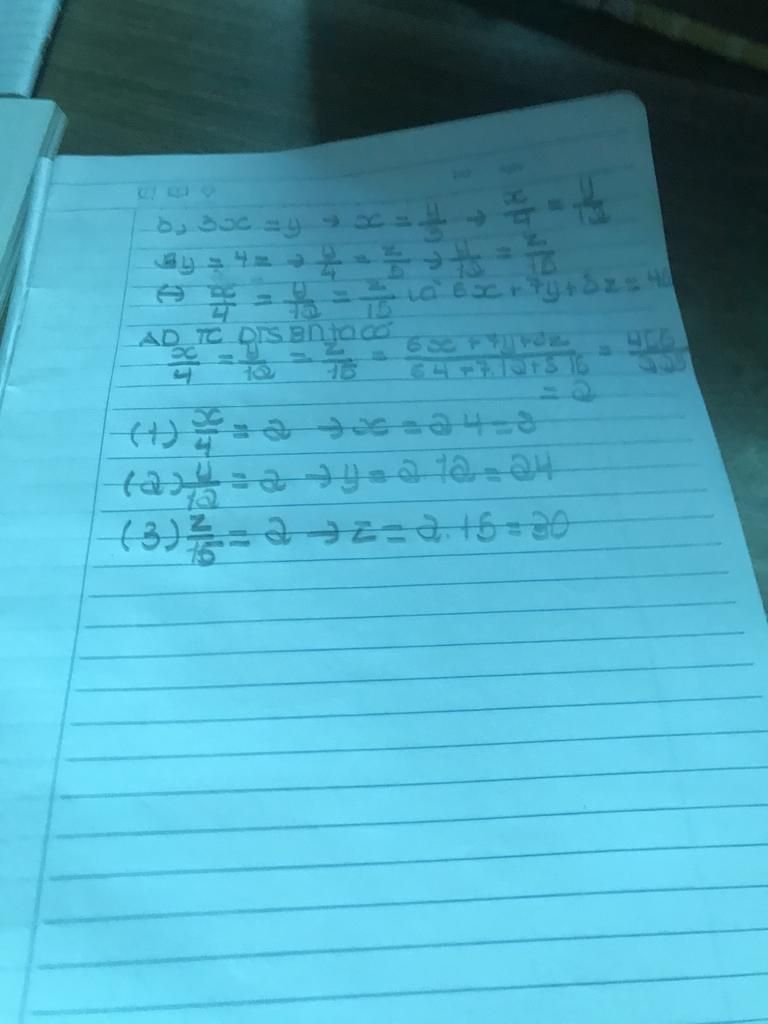 b, 3x = y → x = y/3 → x/4 = y/12
5y = 4z → y/4 = z/5 → y/12 = z/15
(=) x/4 = y/12 = z/15 và 6x + 7y + 8z = 45
AD TC DTSBNTACÓ
x/4 = y/12 = z/15 = 6x + 7y + 8z / 6.4 + 7.12 + 8.15 = 456/228
= 2
(1) x/4 = 2 → x = 2.4 = 8
(2) y/12 = 2 → y = 2.12 = 24
(3) z/15 = 2 → z = 2.15 = 30